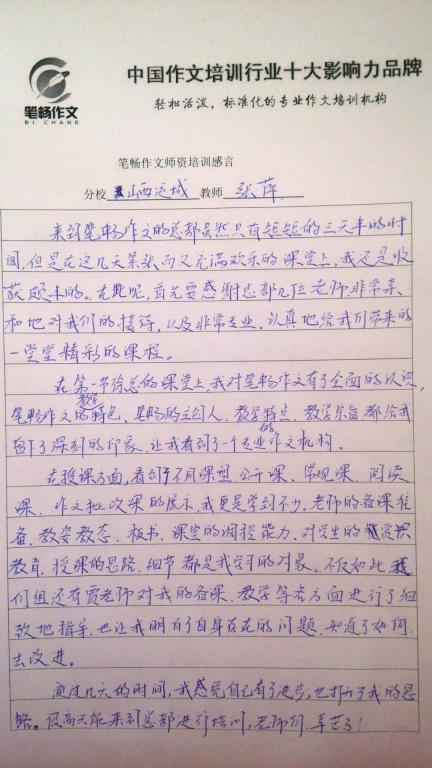 中国作文培训行业十大影响力品牌
轻松活泼,标准化的专业作文培训机构
笔畅作文
BI CHANG
笔畅作文师资培训感言
分校 山西运城 教师 张萍
来到笔畅作文的总部虽然只有短短的三天半的时
间,但是在这几天紧张而又充满欢乐的课堂上,我还是收
获颇丰的。在此呢,首先要感谢总部几位老师非常亲
和地对我们的接待,以及非常专业、认真地给我们带来的
一堂堂精彩的课程。
在第一节徐总的课堂上,我对笔畅作文有了全面的认识,
笔畅作文的教学特色、笔畅的创人、教学特点、教学宗旨都给我
留下了深刻的印象,让我看到了一个专业的作文机构。
在授课方面,看到了不同课型公开课、常规课、阅读
课、作文批改课的展示,我更是学到不少,老师的备课准
备、教姿教态、板书、课堂的调控能力、对学生的赏识
教育、授课的思路、细节都是我学习的对象。不仅如此,我
们组还有贾老师对我的备课、教学等各方面进行了细
致地指导,也让我明白了自身存在的问题,知道了如何
去改进。
通过几天的时间,我感觉自己有了进步,也打开了我的思
路。很高兴能来到总部进行培训,老师们,辛苦了!